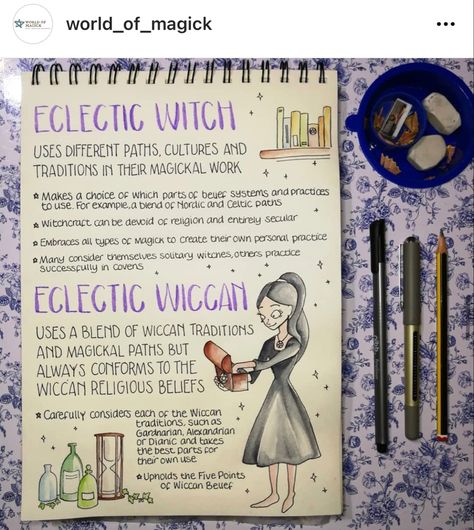 WORLD OF
MAGICK
world_of_magick
ECLECTIC WITCH
USES DIFFERENT PATHS, CULTURES AND
TRADITIONS IN THEIR MAGICKAL WORK
Makes a choice of which parts of belief systems and practices
to use. For example, a blend of Nordic and Celtic paths
Witchcraft can be devoid of religion and entirely secular
Embraces all types of magick to create their own personal practice
Many consider themselves solitary witches, others practice
successfully in covens
ECLECTIC WICCAN
USES A BLEND OF WICCAN TRADITIONS
AND MAGICKAL PATHS BUT
ALWAYS CONFORMS TO THE
WICCAN RELIGIOUS BELIEFS
Carefully considers each of the Wiccan
traditions, such as
Gardnarian, Alexandrian
or Dianic and takes
the best parts for
their own use
Upholds the Five Points
of Wiccan Belief